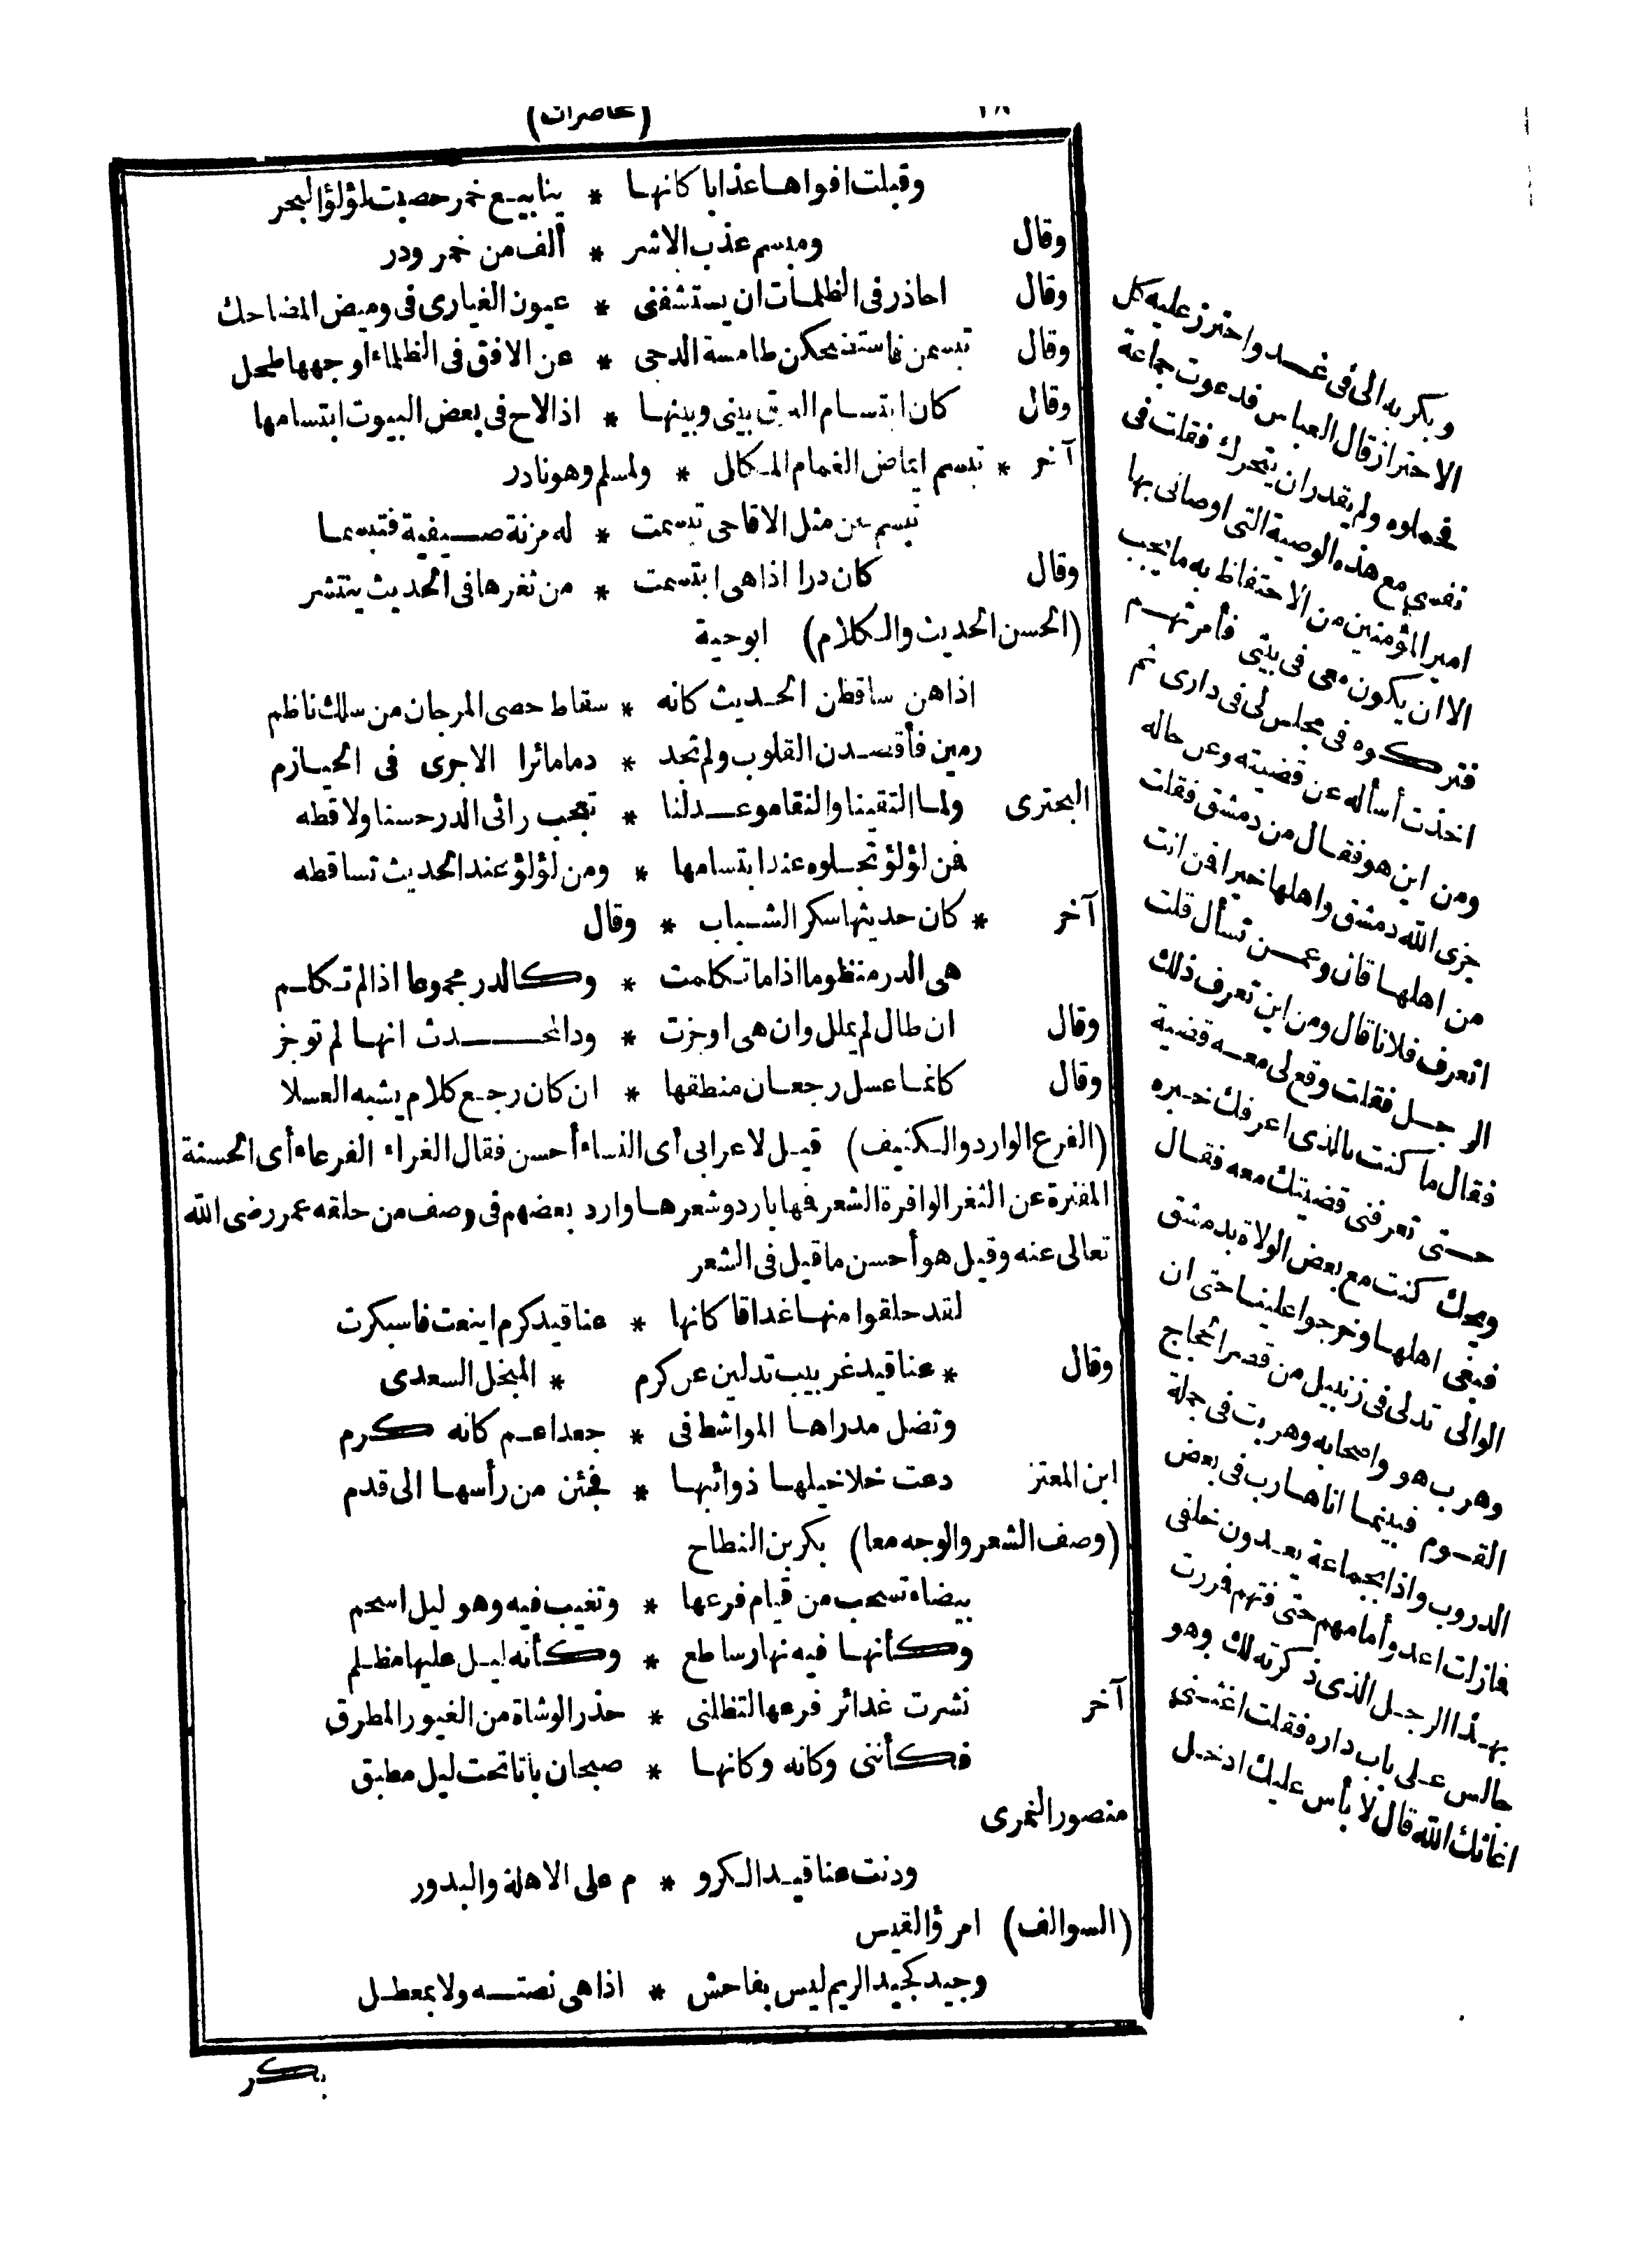 (محاضرات)
وقبلت افواها عذابا كانها * ينابيع خمر حصبت لؤلؤ البحر
وقال ومبسم عذب الاشر * ألف من خمر ودر
وقال احاذر فى الظلمات ان يستشفنى * عيون الغيارى فى وميض المضاحك
وقال تبسمن فاستضحكن طامسة الدجى * عن الافق فى الظلماء اوجهها طحل
وقال كان ابتسام البرق بينى وبينها * اذا لاح فى بعض البيوت ابتسامها
آخر * تبسم ايماض الغمام المكال * ولمسلم وهو نادر
تبسم عن مثل الاقاحى تبسمت * له مزنة صيفية فتبسما
وقال كان درا اذا هى ابتسمت * من ثغرها فى الحديث ينتشر
(الحسن الحديث والكلام) ابو حية
اذا هن ساقطن الحديث كانه * سقاط حصى المرجان من سلك ناظم
رمين فأقصدن القلوب ولم تجد * دما مائرا الا جرى فى الحيازم
البحترى ولما التقينا والنقا موعد لنا * تعجب رائى الدر حسنا ولاقطه
فمن لؤلؤ تجلوه عند ابتسامها * ومن لؤلؤ عند الحديث تساقطه
آخر * كان حديثها سكر الشباب * وقال
هى الدر منظوما اذا ما تكلمت * وكالدر مجموعا اذا لم تكلم
وقال ان طال لم يملل وان هى اوجزت * ود المحدث انها لم توجز
وقال كانما عسل رجعان منطقها * ان كان رجع كلام يشبه العسلا
(الفرع الوارد والكنيف) قيل لاعرابى أى النساء أحسن فقال الغراء الفرعاء أى الحسنة
المفترة عن الثغر الوافرة الشعر فها بارد وشعرها وارد بعضهم فى وصف من حلقه عمر رضى الله
تعالى عنه وقيل هو أحسن ما قيل فى الشعر
لقد حلقوا منها غدافا كانها * عناقيد كرم اينعت فاسبكرت
وقال * عناقيد غربيب تدلين عن كرم * المبخل السعدى
وتضل مدراها المواشط فى * جعد اعم كانه كرم
ابن المعتز دعت خلاخيلها ذوائبها * فجئن من رأسها الى قدم
(وصف الشعر والوجه معا) بكر بن النطاح
بيضاء تسحب من قيام فرعها * وتغيب فيه وهو ليل اسحم
وكأنها فيه نهار ساطع * وكأنه ليل عليها مظلم
آخر نشرت غدائر فرعها لتظلنى * حذر الوشاة من الغيور المطرق
فكأننى وكانه وكانها * صبحان باتا تحت ليل مطبق
منصور النمرى
ودنت عناقيد الكرو * م على الاهلة والبدور
(السوالف) امرؤ القيس
وجيد كجيد الريم ليس بفاحش * اذا هى نصته ولا بمعطل
بكر
وبكر به الىّ فى غد واحترز عليه كل
الاحتراز قال العباس فدعوت جماعة
فحملوه ولم يقدر ان يتحرك فقلت فى
نفسى مع هذه الوصية التى اوصانى بها
امير المؤمنين من الاحتفاظ به ما يجب
الا ان يكون معى فى بيتى فأمرتهم
فتركوه فى مجلس لى فى دارى ثم
اخذت أسأله عن قضيته وعن حاله
ومن اين هو فقال من دمشق فقلت
جزى الله دمشق واهلها خيرا فمن انت
من اهلها قال وعمن تسأل قلت
اتعرف فلانا قال ومن اين تعرف ذلك
الرجل فقلت وقع لى معه قضية
فقال ما كنت بالذى اعرفك خبره
حتى تعرفنى قضيتك معه فقال
ويحك كنت مع بعض الولاة بدمشق
فبغى اهلها وخرجوا علينا حتى ان
الوالى تدلى فى زنبيل من قصر الحجاج
وهرب هو واصحابه وهربت فى جملة
القوم فبينما انا هارب فى بعض
الدروب واذا بجماعة يعدون خلفى
فمازلت اعدو أمامهم حتى فتهم فررت
بهذا الرجل الذى ذكرته لك وهو
جالس على باب داره فقلت اغثنى
اغاثك الله قال لا بأس عليك ادخل